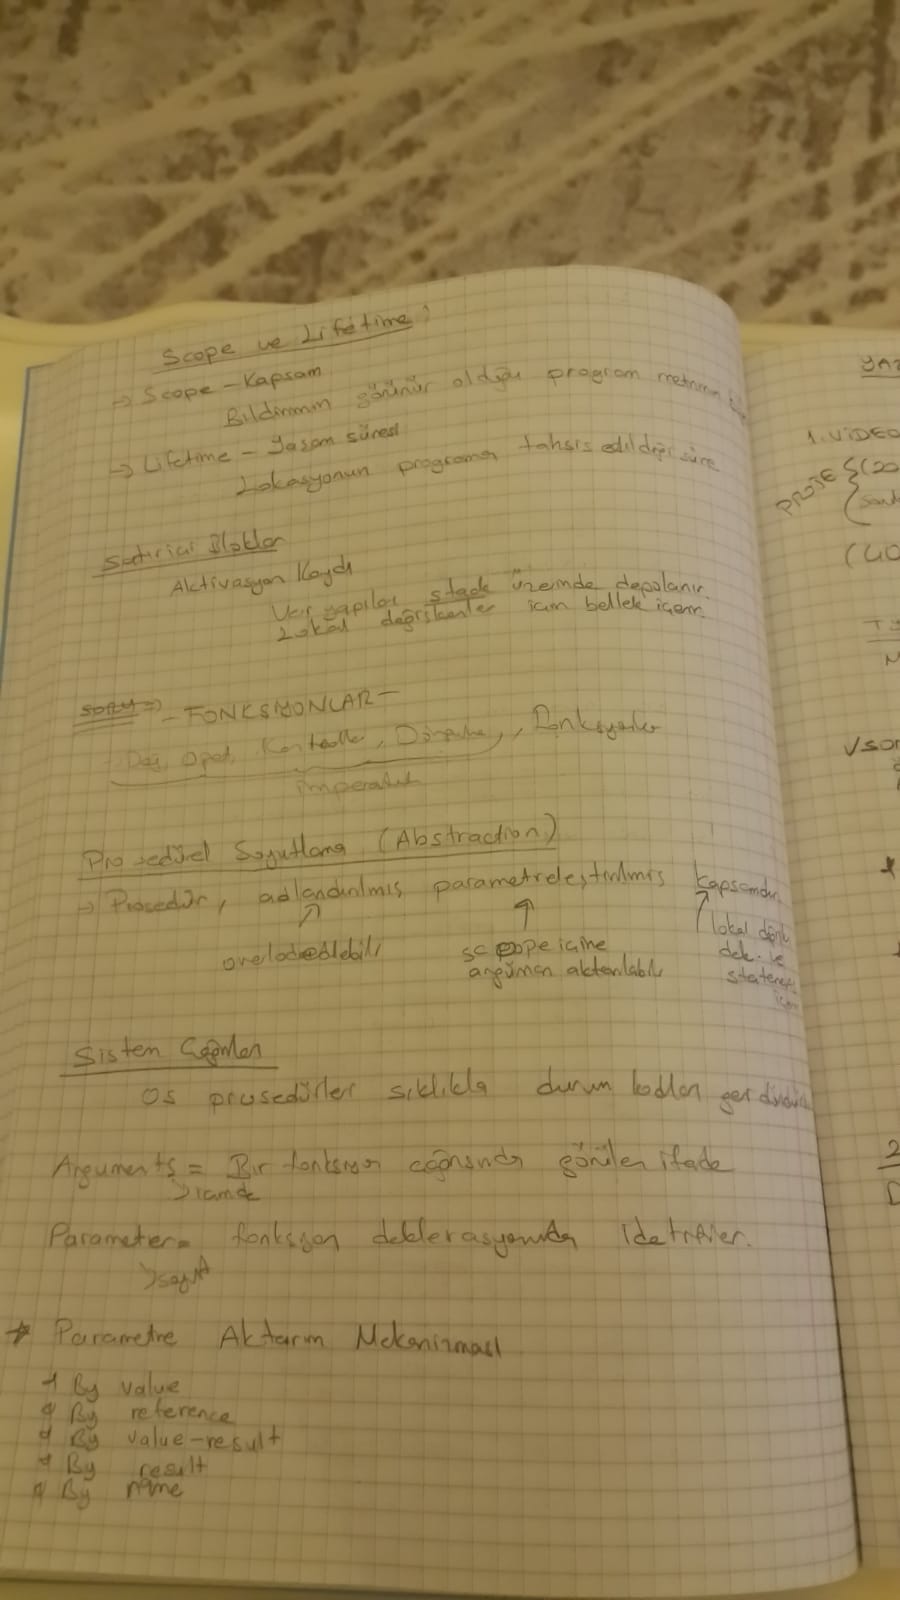 Scope ve Lifetime:
→ Scope - Kapsam
Bildirimin görünür olduğu program metninin
→ Lifetime - Yaşam süresi
Lokasyonun programa tahsis edildiği süre
Satıriçi Bloklar
Aktivasyon Kaydı
Veri yapıları stack üzerinde depolanır.
Lokal değişkenler için bellek içerir
SORU ⇒ - FONKSİYONLAR -
Değ, Opat, Kontroller, Döngüler, Fonksiyonlar
imperatif
Prosedürel Soyutlama (Abstraction)
→ Prosedür, adlandırılmış parametreleştirilmiş kapsamdır.
overloadedilebilir
scope içine
argüman aktarılabilir
lokal
dek. ve
Sistem Çağrıları
OS prosedürler sıklıkla durum kodları geri
Arguments = Bir fonksiyon çağrısında görülen ifade
Parameter = fonksiyon deklerasyonunda
soyut
* Parametre Aktarım Mekanizması
By value
By reference
By value-result
By result
By name
YAZ
1. VİDEO
PROJE